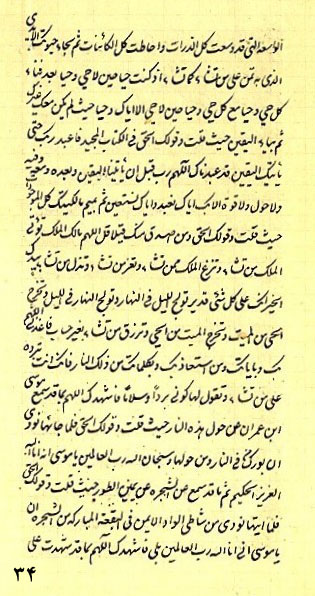 الواسعة التي قد وسعت كل الذرات و احاطت كل الكائنات ثم بحياء حيوتك الابدي
الذي به تمن على من تشاء كما تشاء اذ كنت حيا حين لا حي و حيا بعد فناء
كل حي و حيا مع كل حي و حيا حين لا حي الا اياك و حيا حيث لم يكن معك غيرك
ثم بهاء اليقين حيث قلت و قولك الحق في الكتاب المجيد فاعبد ربك حتى
يأتيك اليقين قد عبدناك اللهم رب قبل ان يأتينا اليقين و بعده و معه و فيه
و لا حول و لا قوة الا بك اياك نعبد و اياك نستعين ثم بميم مالكيتك كل
حيث قلت و قولك الحق و من اصدق منك قيلا قل اللهم مالك الملك تؤتي
الملك من تشاء و تنزع الملك ممن تشاء و تعز من تشاء و تذل من تشاء بيدك
الخير انك على كل شئ قدير تولج الليل في النهار و تولج النهار في الليل و تخرج
الحي من الميت و تخرج الميت من الحي و ترزق من تشاء بغير حساب اللهم
بك و من استعاذ بك و بكلماتك من ذلك النار فانك انت
على من تشاء و تقول لها كوني بردا و سلاما فاشهدك اللهم بما قد سمع موسى
ابن عمران عن حول هذه النار حيث قلت و قولك الحق فلما جائها نودي
ان بورك من في النار و من حولها و سبحان الله رب العالمين يا موسى انه انا الله
العزيز الحكيم ثم ما قد سمع عن الشجره عن يمين الطور حيث قلت و قولك الحق
فلما اتيها نودي من شاطئ الواد الايمن في البقعة المباركه من الشجره ان
يا موسى اني انا الله رب العالمين بلى فاشهدك اللهم بما قد شهدت على
٣٤